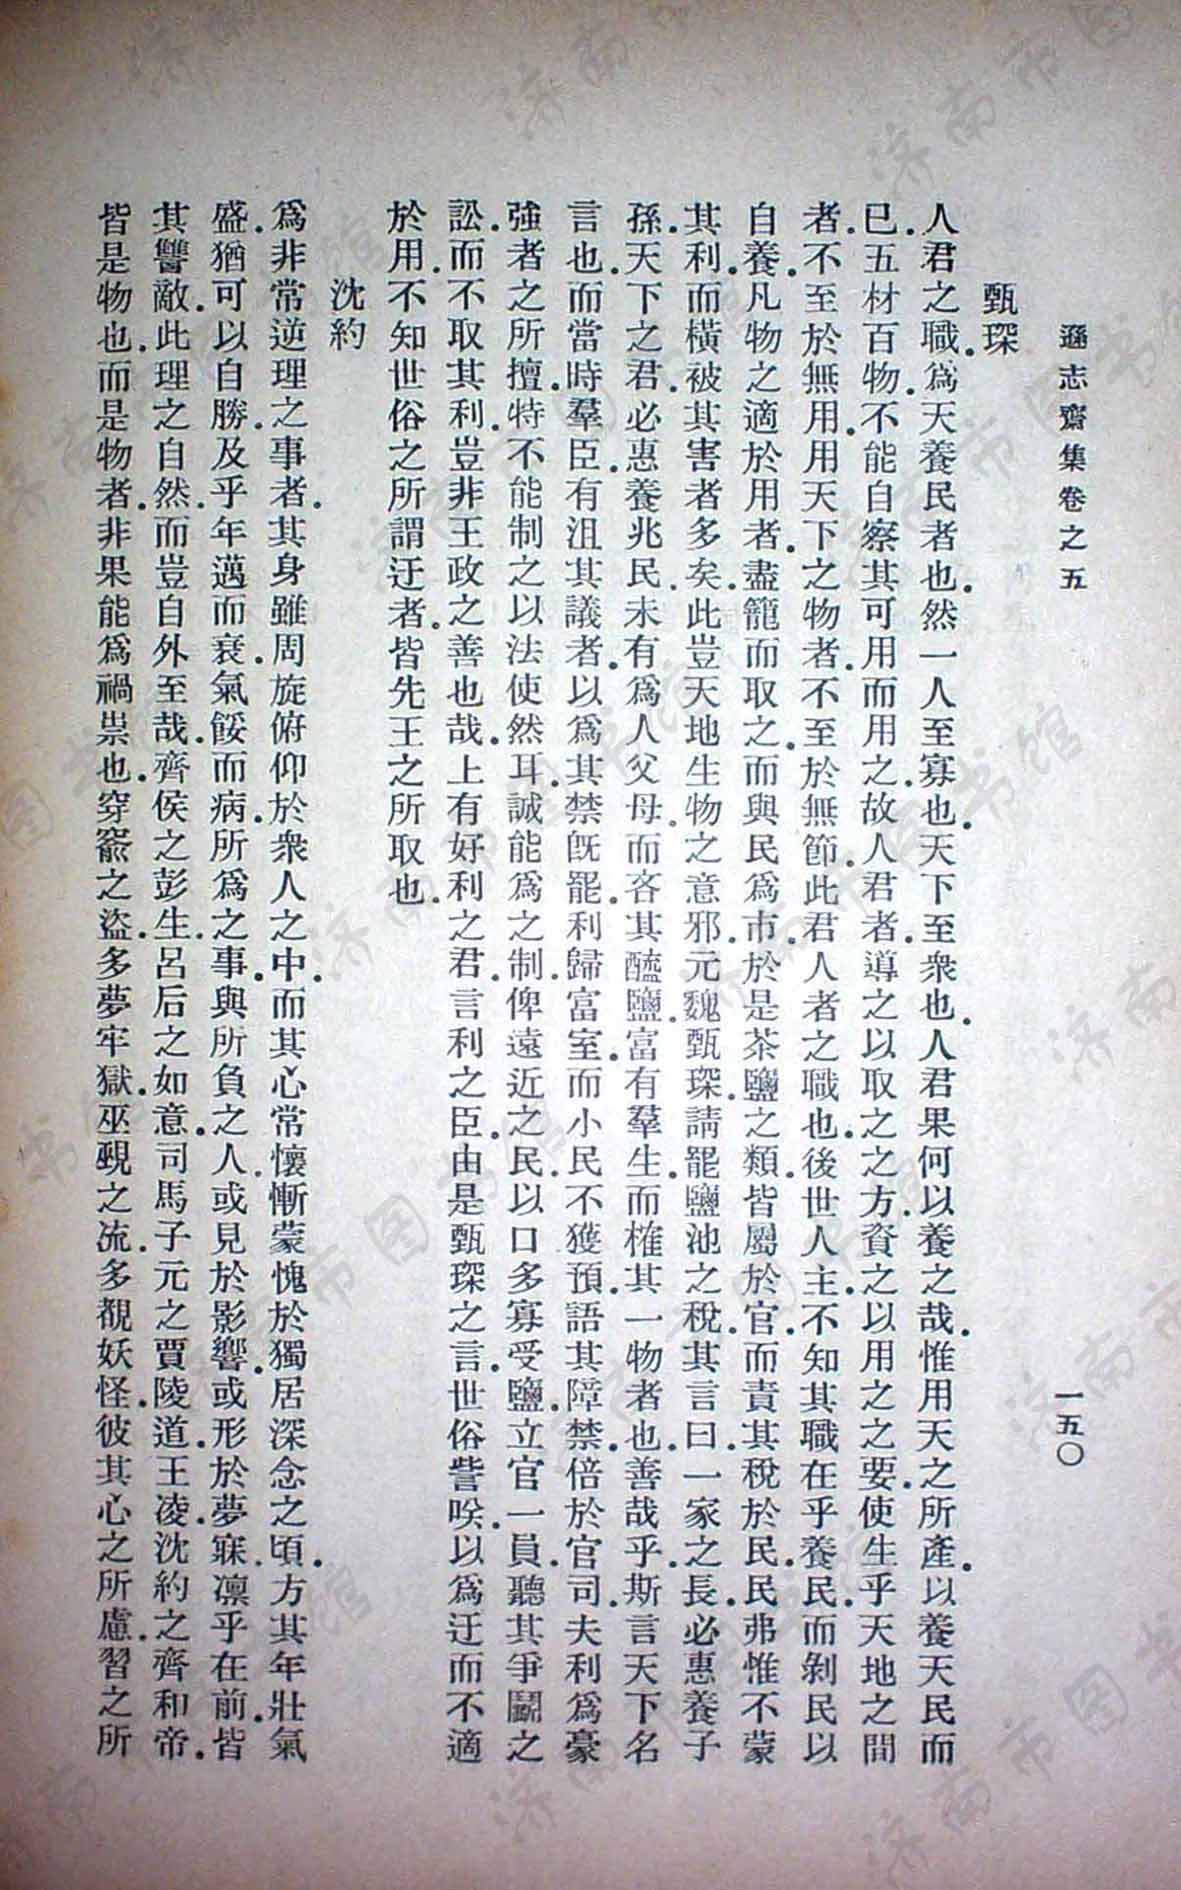 遜志齋集卷之五
一五〇
甄琛
人君之職.爲天養民者也.然一人至寡也.天下至衆也.人君果何以養之哉.惟用天之所產.以養天民而
已.五材百物.不能自察其可用而用之.故人君者.導之以取之之方.資之以用之之要.使生乎天地之間
者.不至於無用.用天下之物者.不至於無節.此君人者之職也.後世人主.不知其職在乎養民.而剝民以
自養.凡物之適於用者.盡籠而取之.而與民爲市.於是茶鹽之類.皆屬於官.而責其稅於民.民弗惟不蒙
其利.而橫被其害者多矣.此豈天地生物之意邪.元魏甄琛請罷鹽池之稅.其言曰.一家之長.必惠養子
孫.天下之君.必惠養兆民.未有爲人父母.而吝其醯鹽.富有羣生.而榷其一物者也.善哉乎.斯言天下名
言也.而當時羣臣.有沮其議者.以爲其禁旣罷.利歸富室.而小民不獲預.語其障禁.倍於官司.夫利爲豪
強者之所擅.特不能制之以法使然耳.誠能爲之制.俾遠近之民.以口多寡受鹽.立官一員.聽其爭鬭之
訟.而不取其利.豈非王政之善也哉.上有好利之君.言利之臣.由是甄琛之言.世俗訾唉.以爲迂而不適
於用.不知世俗之所謂迂者.皆先王之所取也.
沈約
爲非常逆理之事者.其身雖周旋俯仰於衆人之中.而其心常懷慚蒙愧於獨居深念之頃.方其年壯氣
盛.猶可以自勝.及乎年邁而衰.氣餒而病.所爲之事.與所負之人.或見於影響.或形於夢寐.凜乎在前.皆
其讐敵.此理之自然.而豈自外至哉.齊侯之彭生.呂后之如意.司馬子元之賈陵道.王凌沈約之齊和帝.
皆是物也.而是物者.非果能爲禍祟也.穿窬之盜.多夢牢獄.巫覡之流.多覩妖怪.彼其心之所慮.習之所